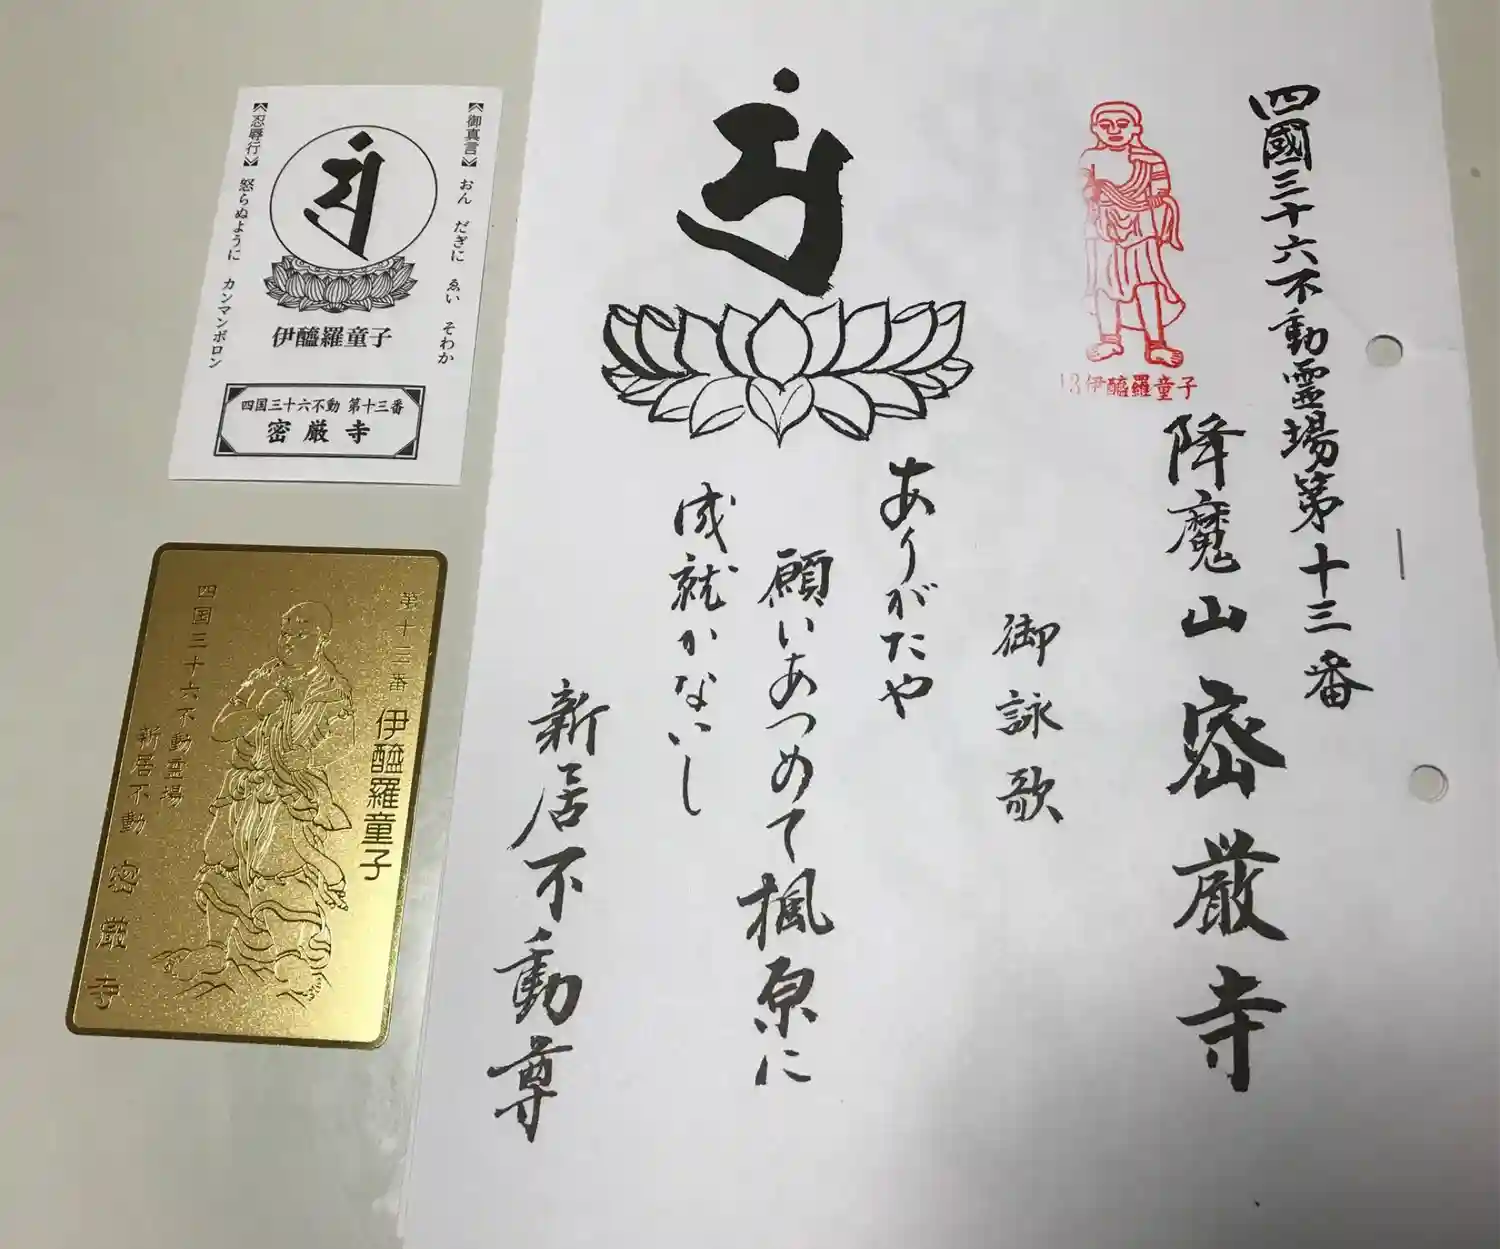 四國三十六不動霊場第十三番
降魔山 密厳寺
13伊醯羅童子
御詠歌
ありがたや
願いあつめて楓原に
成就かないし
新居不動尊
《御真言》 おん だぎに ゑい そわか
《忍辱行》 怒らぬように カンマンボロン
伊醯羅童子
四国三十六不動 第十三番
密厳寺
第十三番 伊醯羅童子
四国三十六不動霊場
新居不動 密厳寺